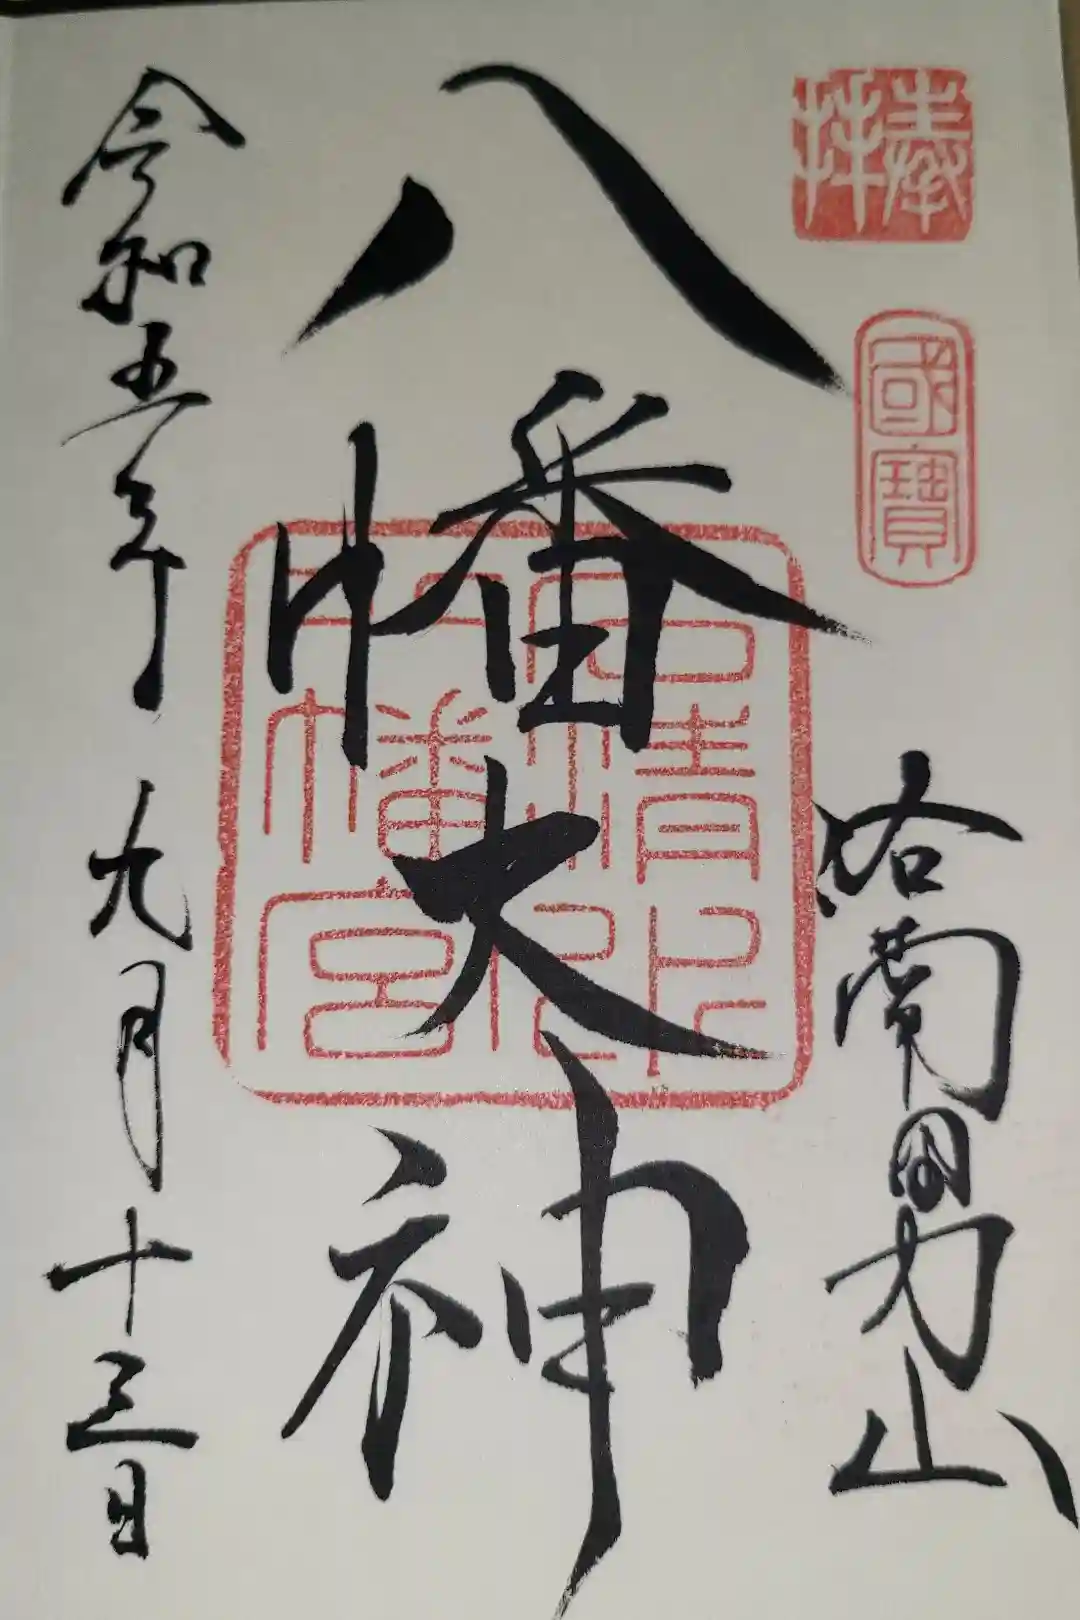 奉拝
國寶
洛南男山
八幡大神
石清水
八幡宮
令和五年九月十三日